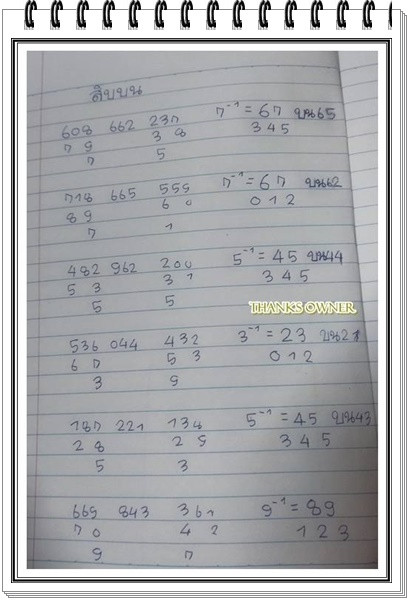 สิบบน
608 662 237 7⁻¹ = 67 บน65
7 9 3 8 3 4 5
7 5
718 665 555 7⁻¹ = 67 บน62
8 9 6 0 0 1 2
7 1
482 962 200 5⁻¹ = 45 บน44
5 3 3 1 3 4 5
5 5
THANKS OWNER.
536 044 432 3⁻¹ = 23 บน21
6 7 5 3 0 1 2
3 9
187 221 134 5⁻¹ = 45 บน43
2 8 2 9 3 4 5
5 3
669 843 361 9⁻¹ = 89
7 0 4 2 1 2 3
9 7